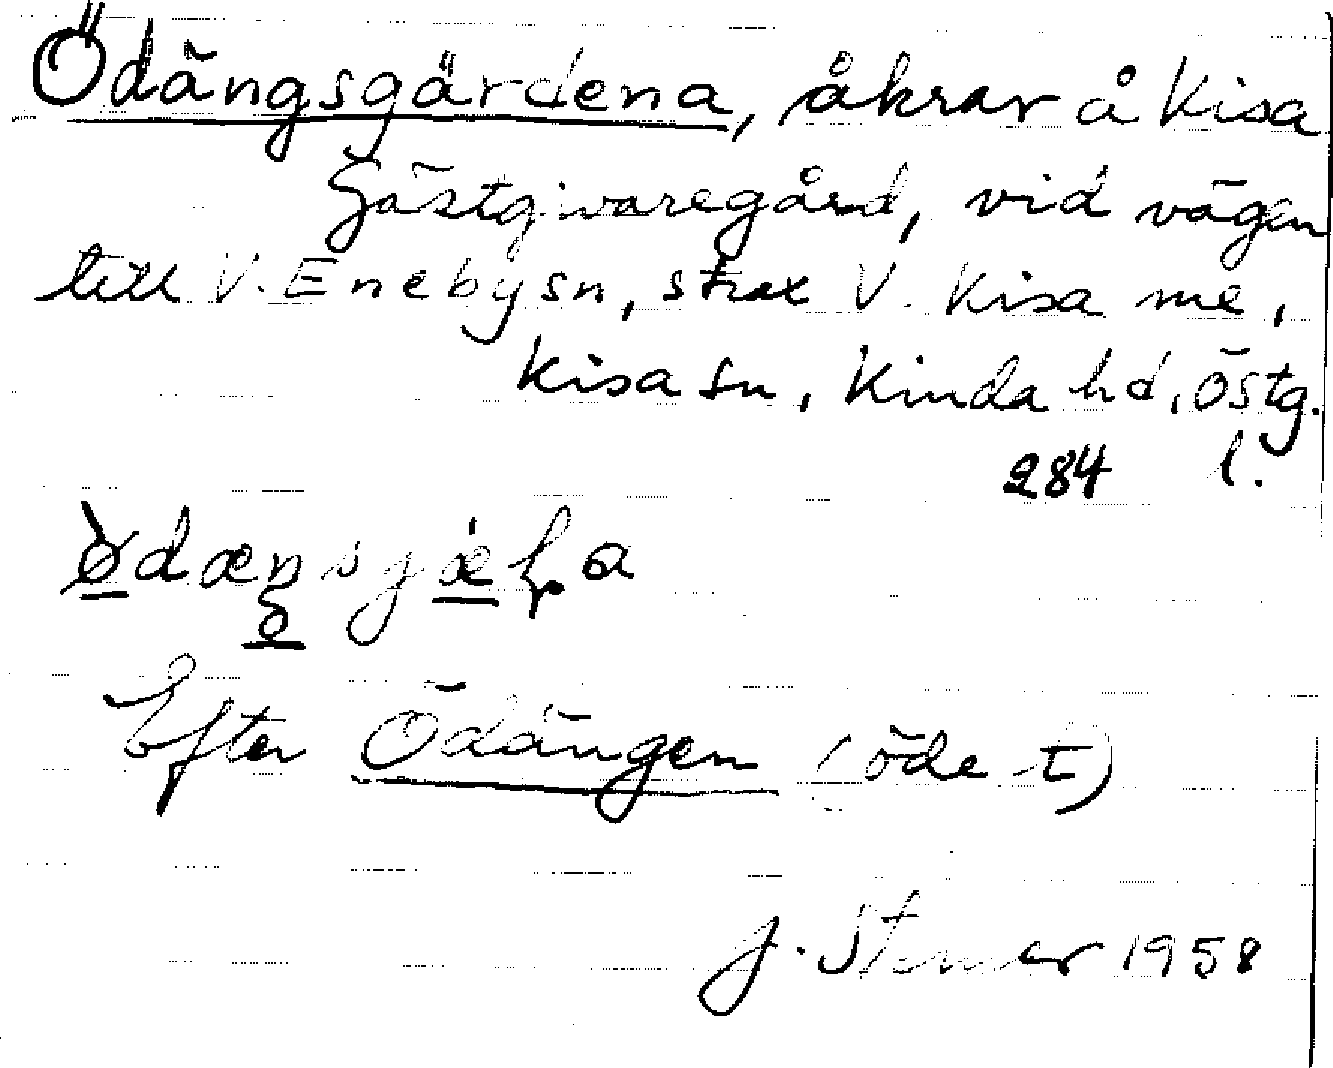 Ödängsgärdena, åkrar å Kisa
Gästgivaregård, vid vägen
till V. Eneby sn, strax V. Kisa me,
Kisa sn, Kinda hd, Östg.
284 l.
Efter Ödängen (öde t)
J. 1958